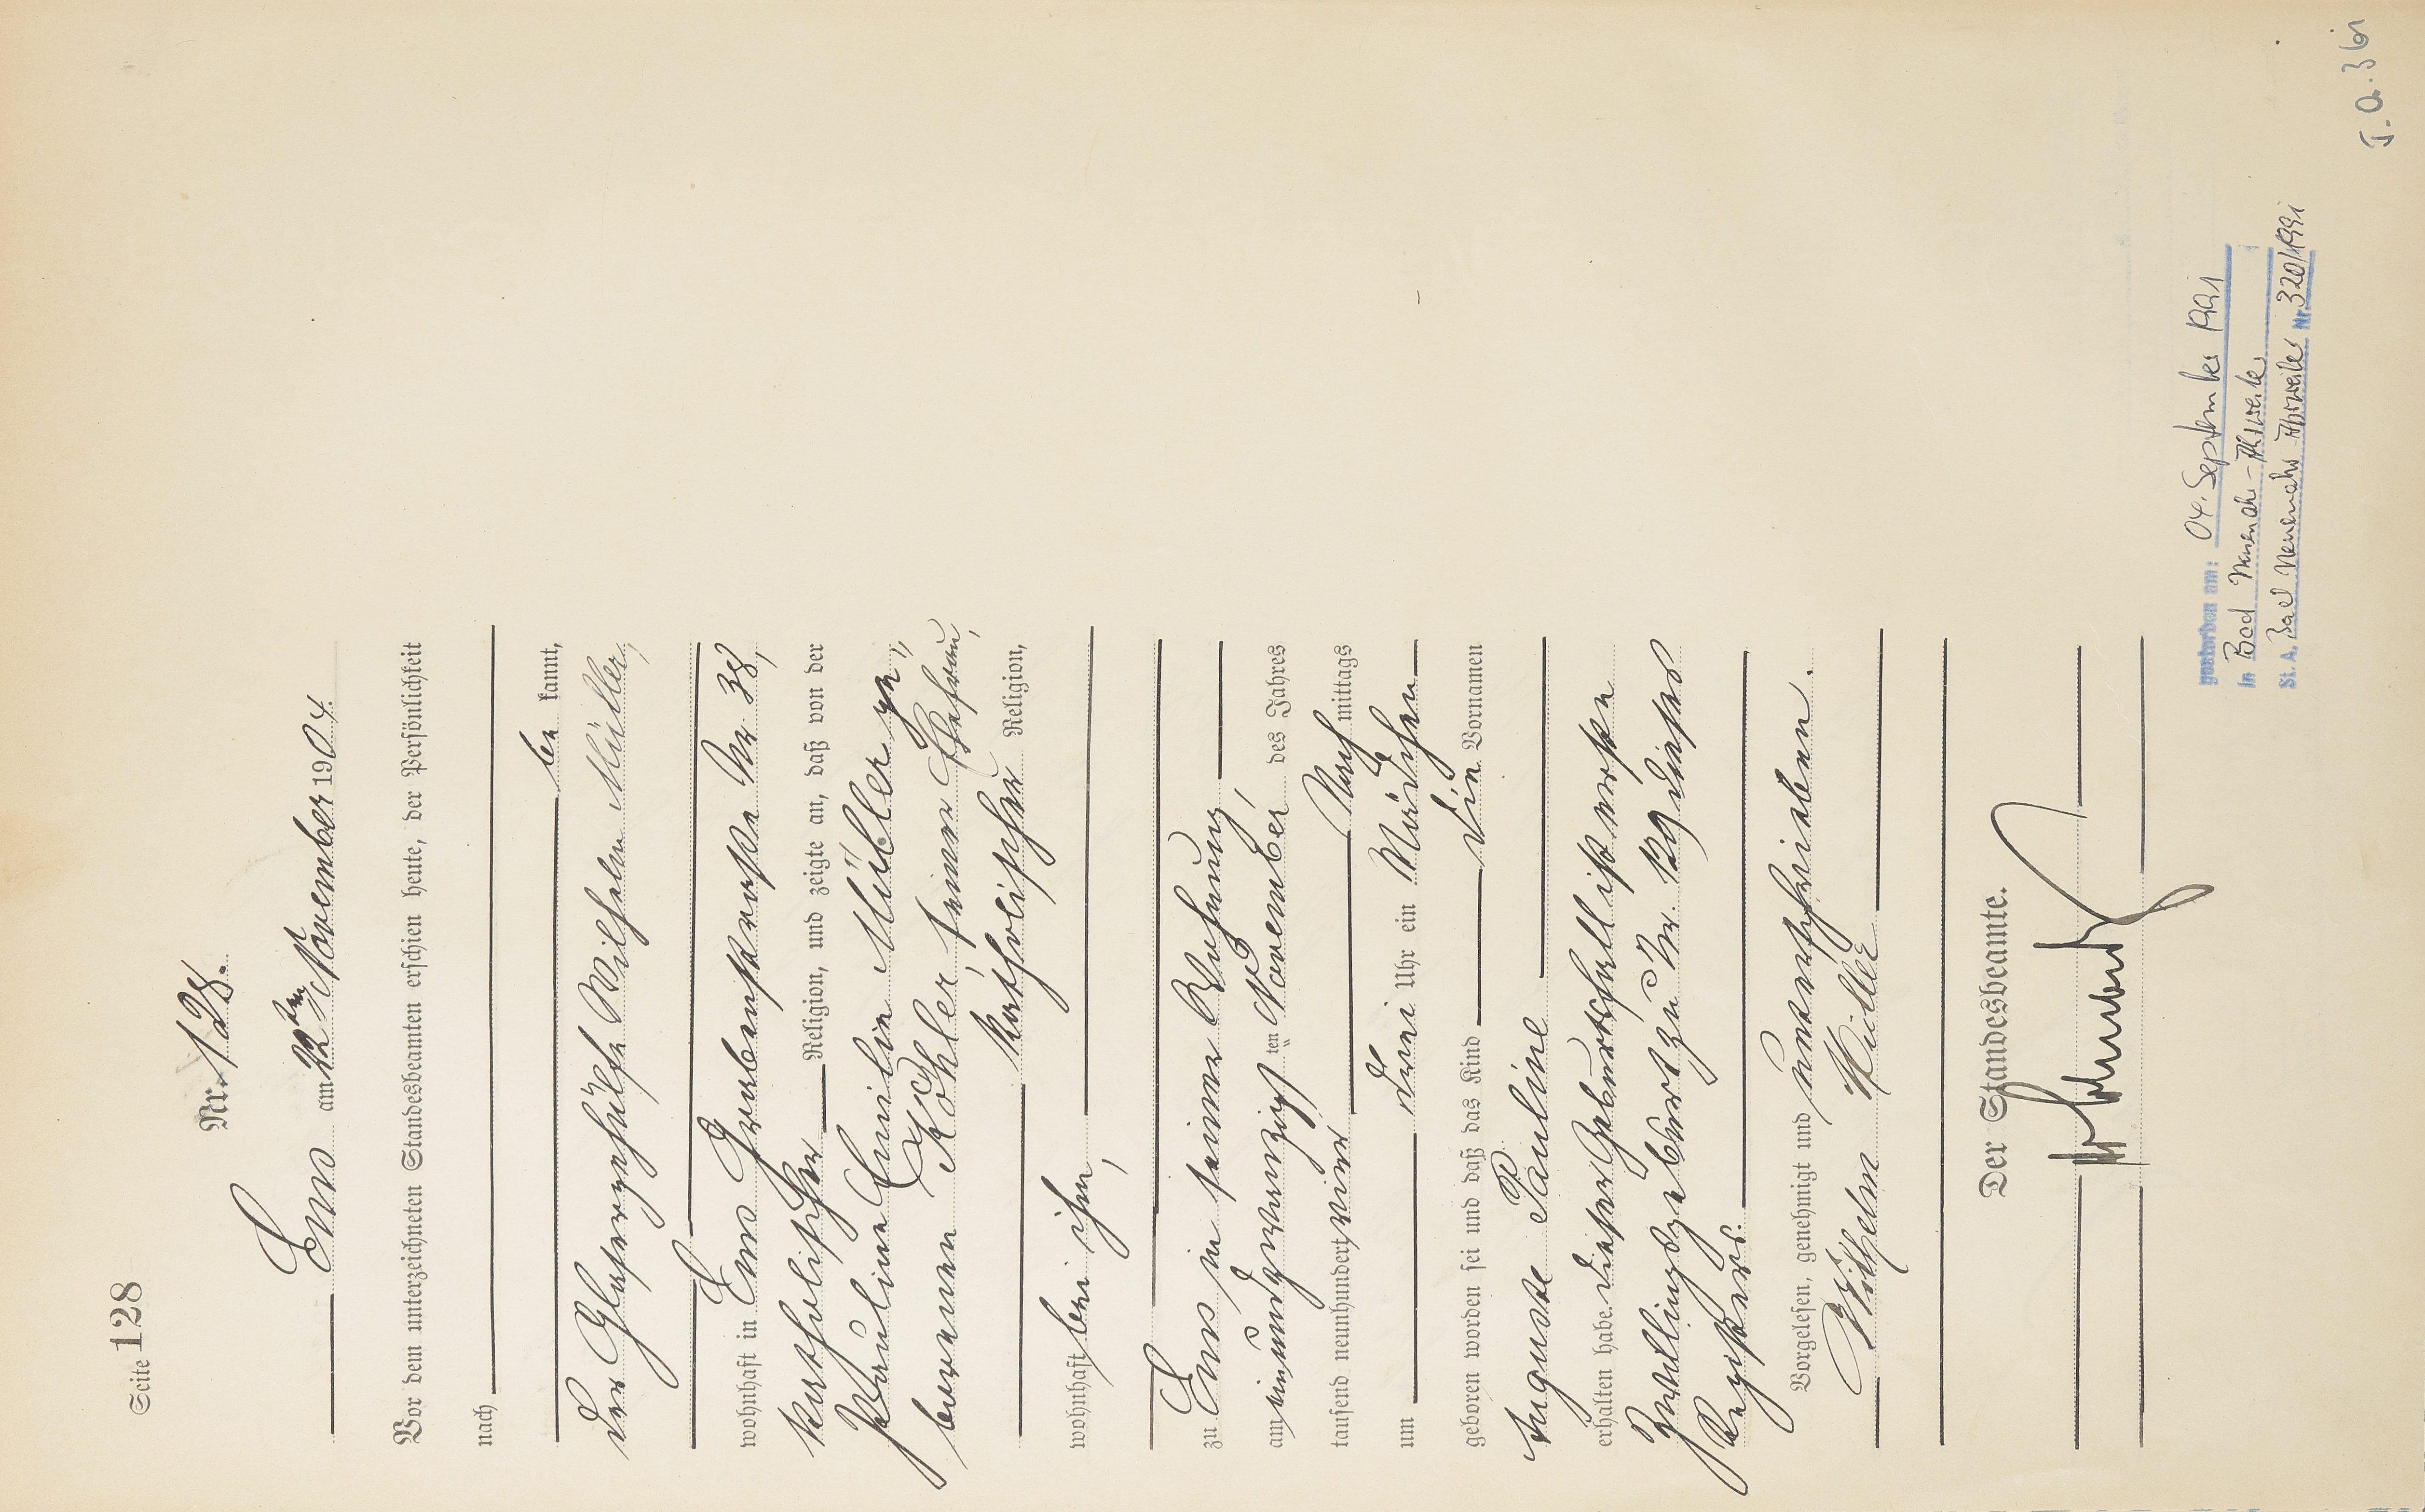 Seite 128
Nr. 128.
Ems am 22ten November 1904.
Vor dem unterzeichneten Standesbeamten erschien heute, der Persönlichkeit
nach
be kannt,
der Glasergehülfe Wilhelm Müller,
wohnhaft in Ems Grabenstraße Nr 38,
katholischer Religion, und zeigte an, daß von der
Pauline Emilie Müller ge„
borenen Köhler, seiner Ehefrau,
katholischer Religion,
wohnhaft bei ihm,
zu Ems in seiner Wohnung,
am einundzwanzigsten November des Jahres
tausend neunhundert vier Nach mittags
um drei Uhr ein Mädchen
geboren worden sei und daß das Kind die Vornamen
Auguste Pauline
erhalten habe. Dieser Geburtsfall ist erste
Zwillingsgeburt zu Nr. 129 dieses
Registers.
Vorgelesen, genehmigt und unterschrieben.
Wilhelm Müller
Der Standesbeamte.
gestorben am: 04. September 1991
in Bad Neuenahr-Ahrweiler
St. A. Bad Neuenahr-Ahrweiler Nr. 320/1991